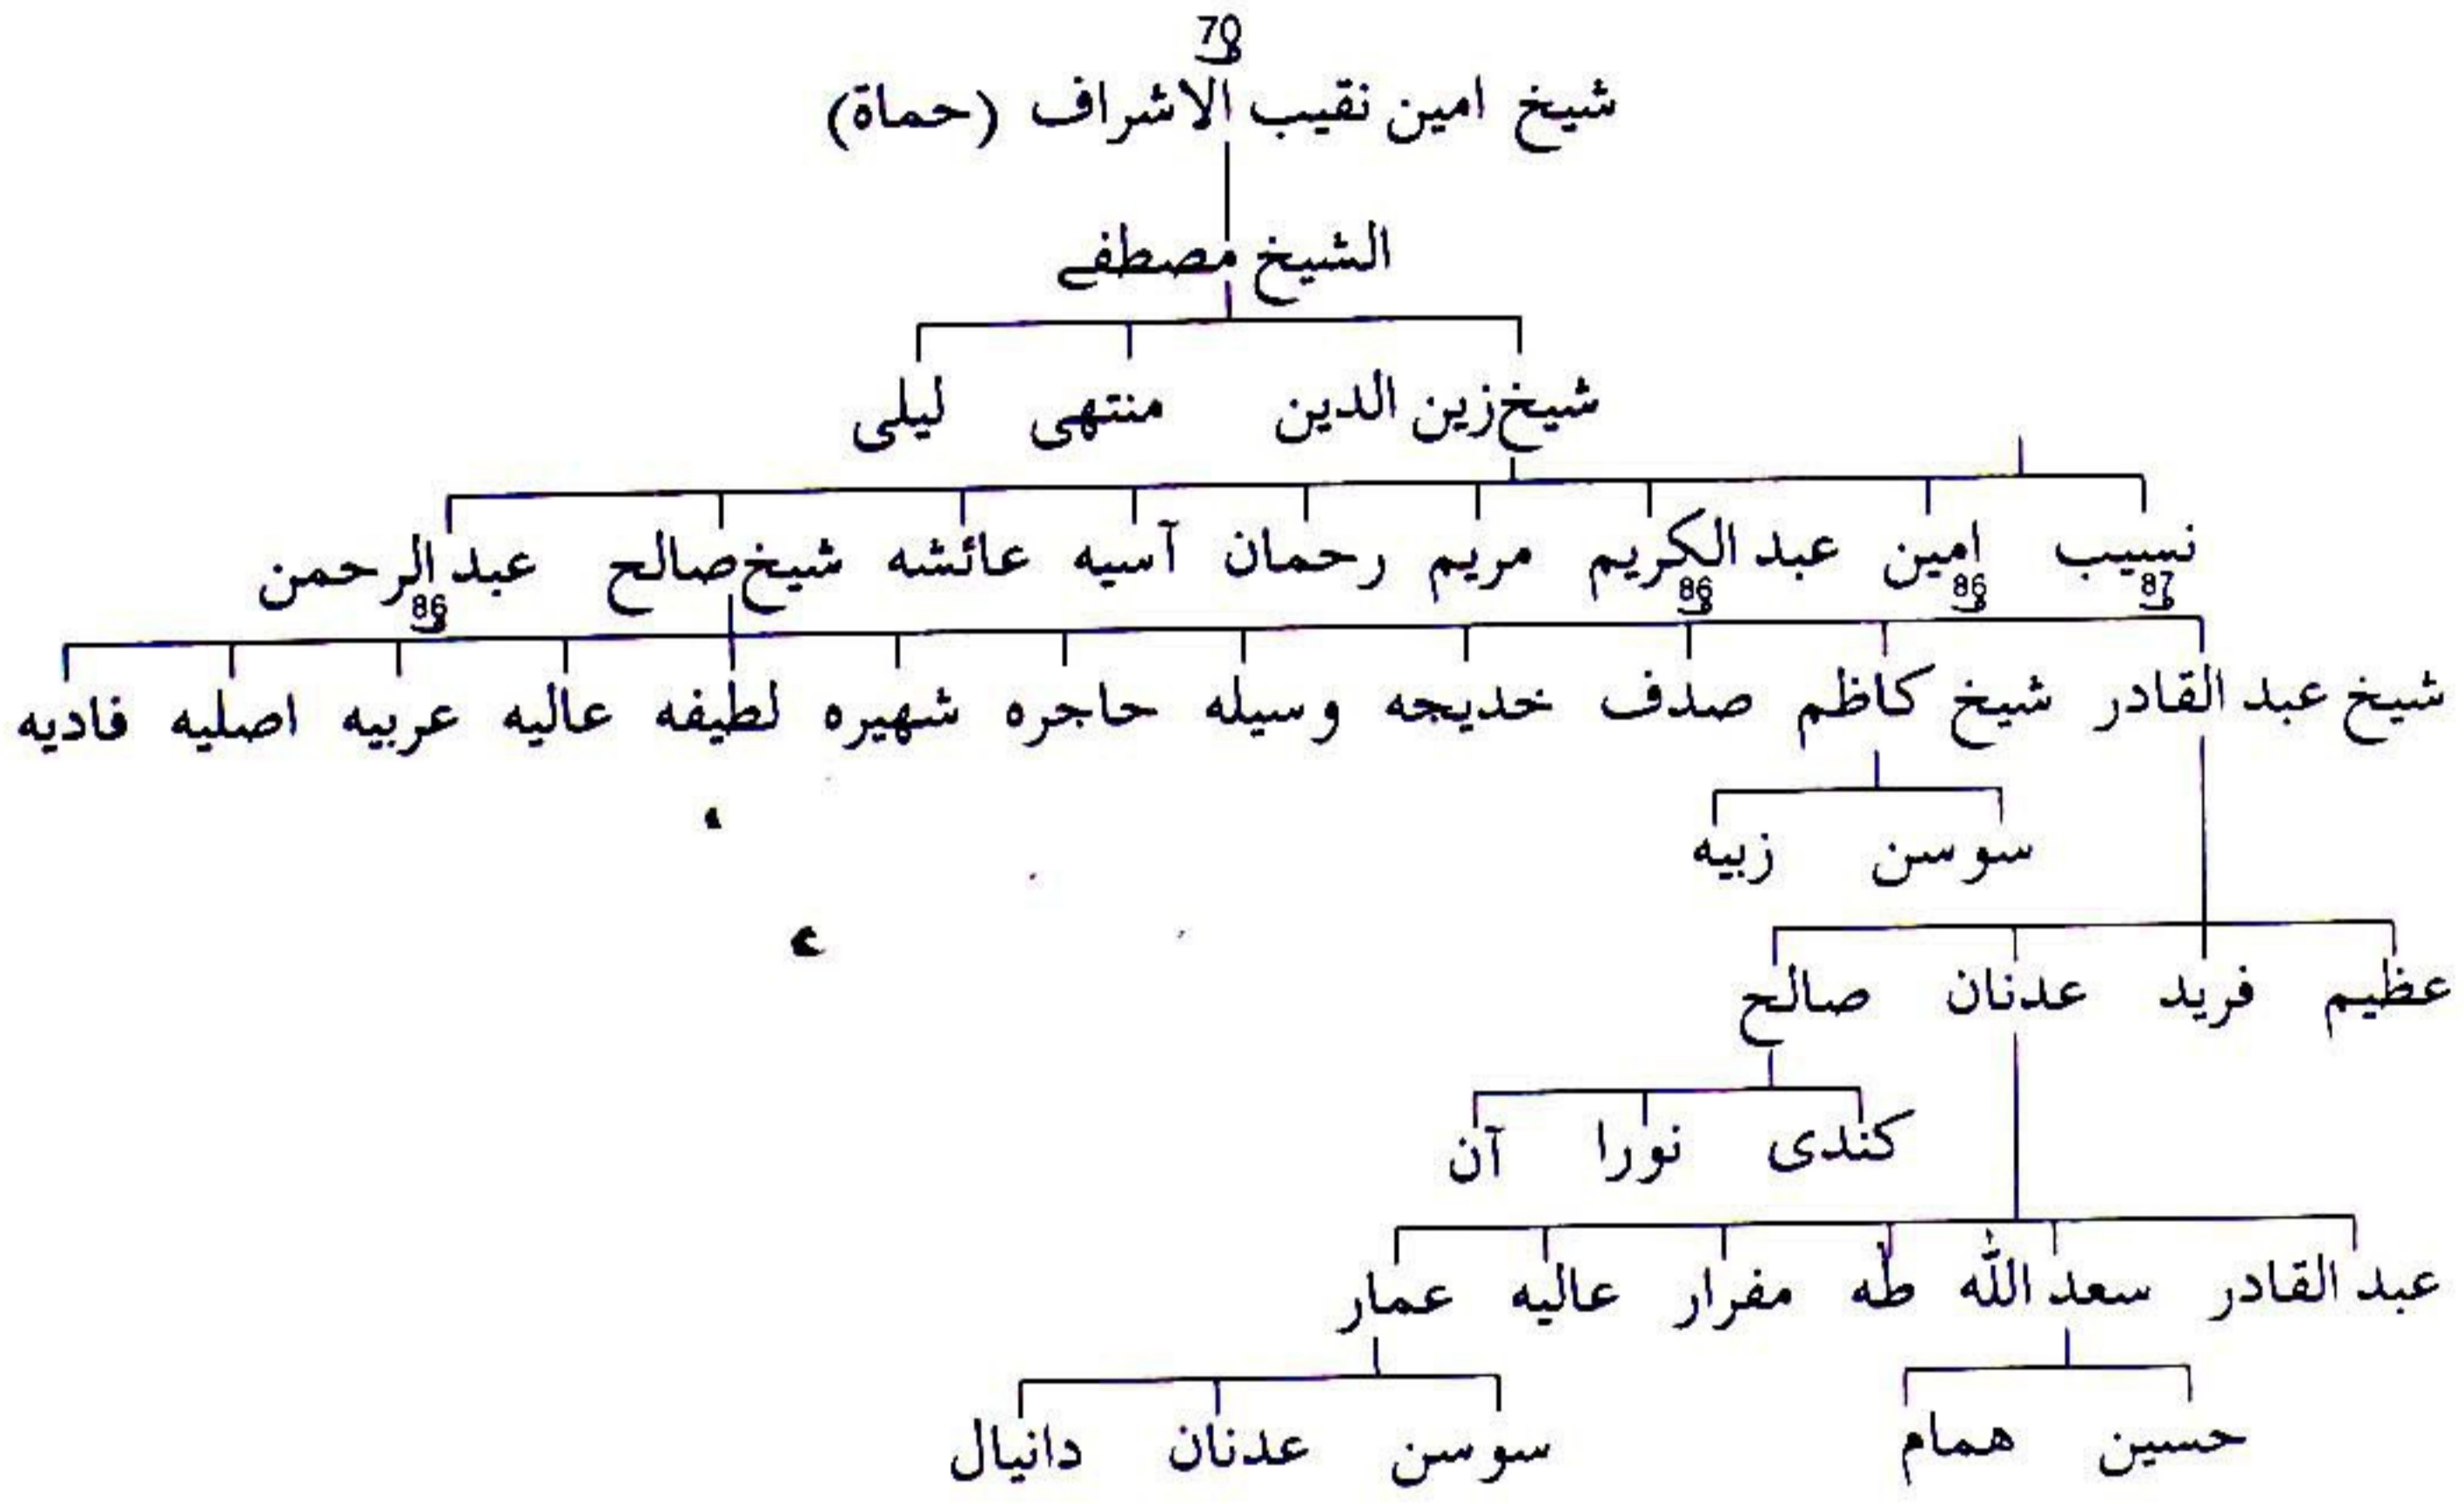 70
شيخ امين نقيب الاشراف (حماة)
الشيخ مصطفے
شيخ زين الدين منتهى ليلى
نسيب امين عبد الكريم مريم رحمان آسيه عائشه شيخ صالح عبد الرحمن
87 86 86 86
شيخ عبد القادر شيخ كاظم صدف خديجه وسيله حاجره شهيره لطيفه عاليه عربيه اصليه فاديه
سوسن زبيه
عظيم فريد عدنان صالح
كندى نورا آن
عبد القادر سعد اللّٰه طٰه مفرار عاليه عمار
حسين همام سوسن عدنان دانيال